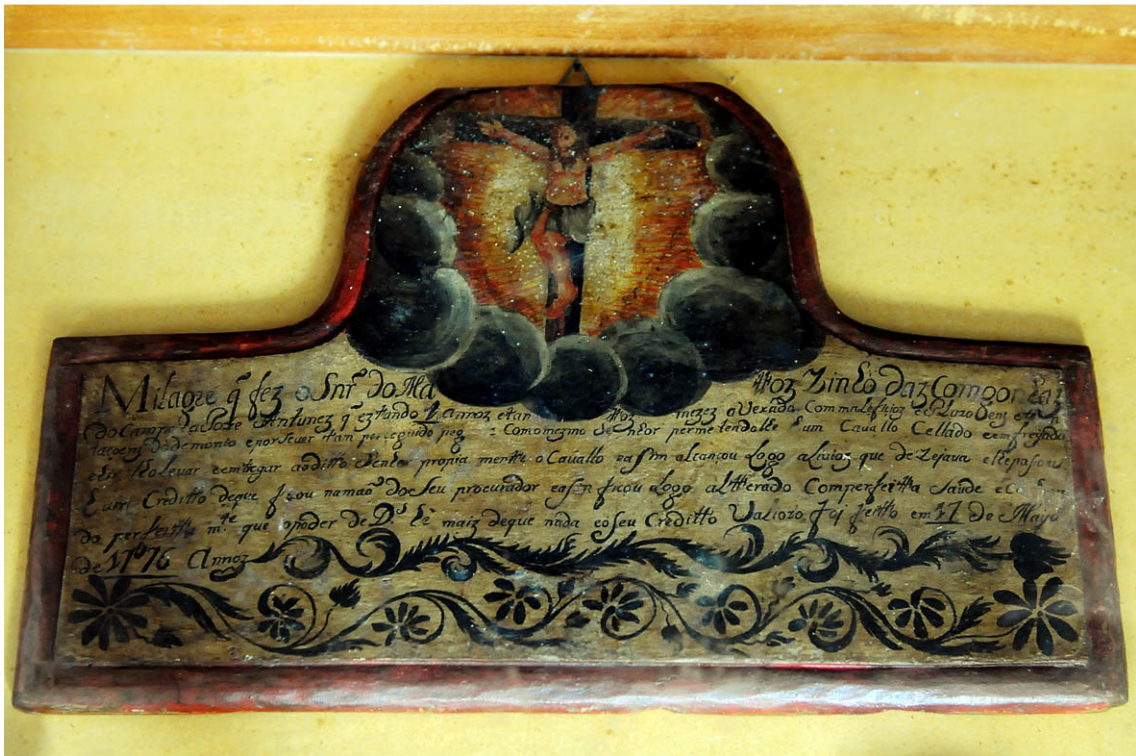 Milagre q̃ fez o Snr̃ do Ma ttoz Zinhõ daz Comgonhaz
do Campo a Joze Antunez q̃ eztando annoz e tan ttoz mezez a Verado Com maleficioz e
tacoens do demonio e por se ver tam perceguido Como mezmo Senhor permetendo lhe hum Cavallo Cellado e emfreado
e levar e emtregar ao ditto Senhor propia mentte o Cavallo e aSsim alcançou Logo alivioz que dezejava e lhe pasou
hum Creditto deque ficou na maõ do Seu procurador e aSsim ficou Logo Comperfeitta Saude e
do perfeitto mte que o poder de Ds hé maiz de que nada e o seu Creditto Valiozo foi feitto em 17 de Mayo
de 1776 Annoz